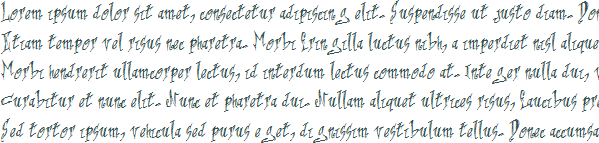 Lorem ipsum dolor sit amet, consectetur adipiscing elit. Suspendisse ut justo diam. Don
Etiam tempor vel risus nec pharetra. Morbi fringilla luctus nibh, a imperdiet nisl alique
Morbi hendrerit ullamcorper lectus, id interdum lectus commodo at. Integer nulla dui, v
Curabitur et nunc elit. Nunc et pharetra dui. Nullam aliquet ultrices risus, faucibus pr
Sed tortor ipsum, vehicula sed purus eget, dignissim vestibulum tellus. Donec accumsa